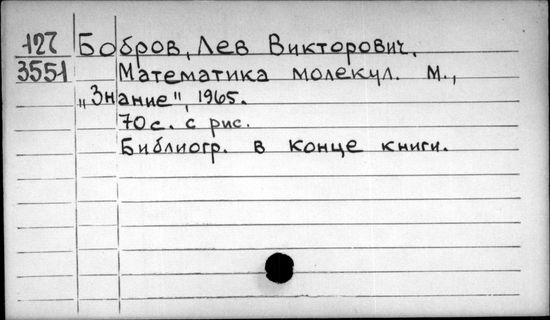 127 Бобров, Лев Викторович.
3551 Математика молекул. М.,
„Знание", 1965.
70 с. с рис.
Библиогр. в конце книги.